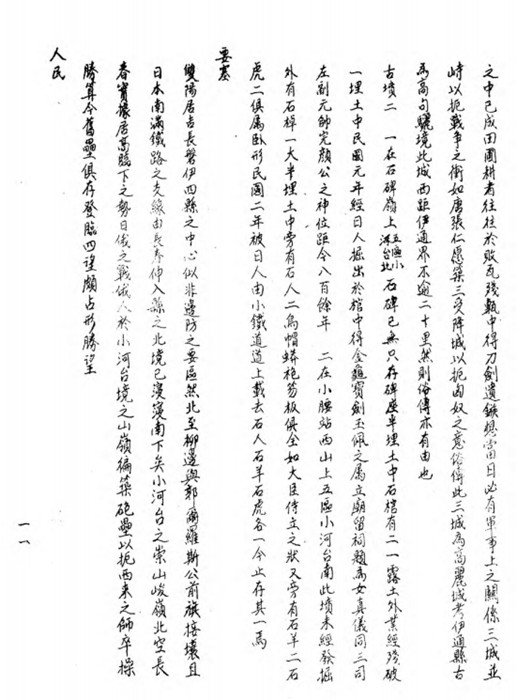 之中已成田園耕者往往於敗瓦殘甎中得刀劍遺鏃想當日必有軍事上之關係三城並
峙以扼戰事之衝如唐張仁愿築三受降城以扼匈奴之意俗偁此三城為高麗城考伊通縣古
為高句驪境此城西距伊通界不逾二十里然則俗傳亦有由也
古墳二 一在石碑嶺上五區小河台北石碑已無只存碑座半埋土中石棺有二一露土外業經殘破
一埋土中民國元年經日人掘出於棺中得金龜寶劍玉佩之属立廟留祠題為女真儀同三司
左副元帥完顏公之神位距今八百餘年 二在小腰站西山上五區小河台南此墳未經發掘
外有石槨一大半埋土中旁有石人二烏帽蟒袍笏板俱全如大臣侍立之狀又旁有石羊二石
虎二俱属卧形民國二年被日人由小鐵道道上載去石人石羊石虎各一今止存其一焉
要塞
雙陽居吉長磐伊四縣之中心似非邊防之要區然北至柳邊與郭爾羅斯公前旗接壤且
日本南滿鐵路之支線由長春伸入縣之北境已浸浸南下矣小河台之崇山峻嶺北空長
春實據居高臨下之勢日俄之戰俄人於小河台境之山嶺徧築砲壘以扼西来之師卒操
勝算今舊壘俱存登臨四望頗占形勝望
人民
一一